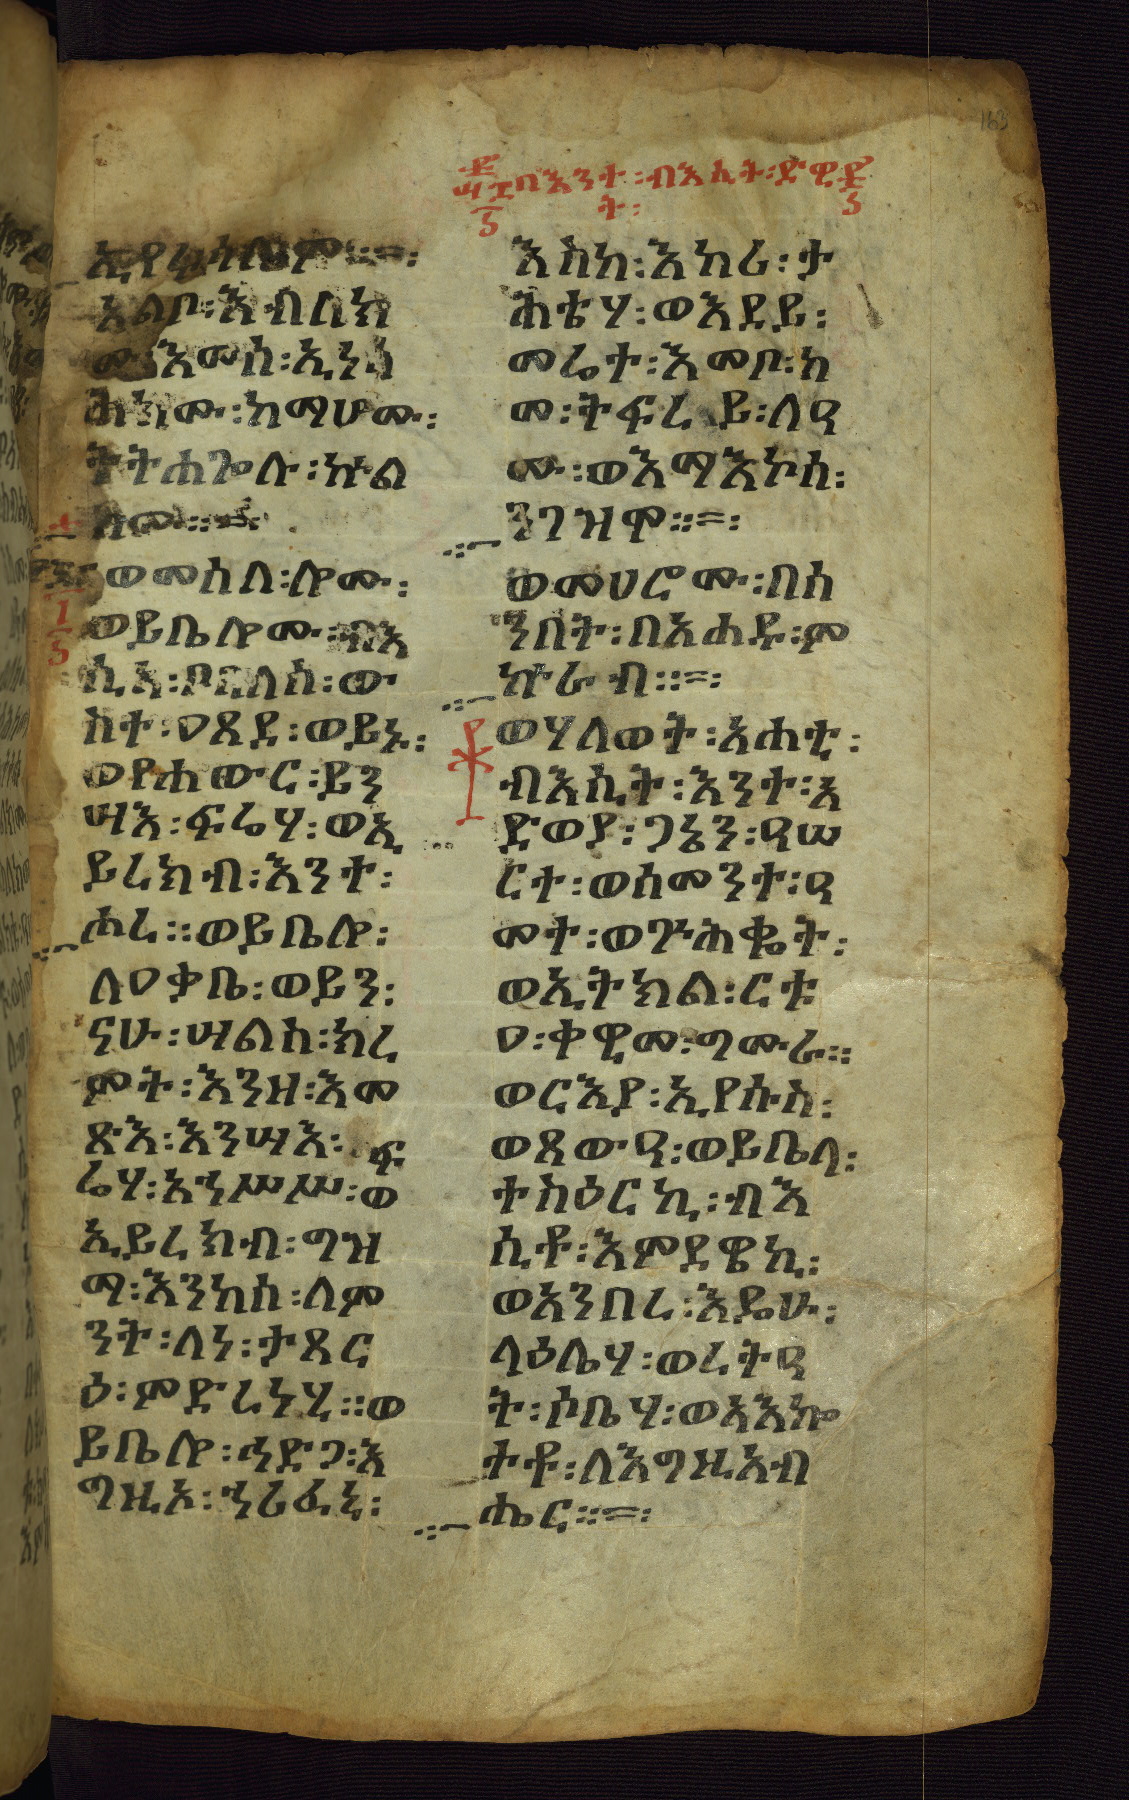 በእንተ፡ብእሲት፡ድዊ
ት፡
ኢየሩሳሌም።
አልቦ፡እብለክ
ሙ፡እመሰ፡ኢነስ
ሕክሙ፡ከማሆሙ፡
ትትሐጐሉ፡ኵል
ክሙ።
ወመሰለ፡ሎሙ፡
ወይቤሎሙ፡ብእ
ሲ፡እ፡ቦ፡በለስ፡ው
ስተ፡ዐጸደ፡ወይኑ፡
ወየሐውር፡ይን
ሣእ፡ፍሬሃ፡ወኢ
ይረክብ፡እንተ፡
ሐሪ።ወይቤሎ፡
ለዐቃቤ፡ወይን፡
ናሁ፡ሣልስ፡ክረ
ምት፡እንዘ፡እመ
ጽእ፡እንሣእ፡ፍ
ሬሃ፡እኀሥሥ፡ወ
ኢይረክብ፡ግዝ
ማ፡እንከሰ፡ለም
ንት፡ለነ፡ታጸር
ዕ፡ምድረነሂ።ወ
ይቤሎ፡ኅድጋ፡እ
ግዚኦ፡ኀሪፈኒ፡
እስከ፡እከሪ፡ታ
ሕቴሃ፡ወእደይ፡
መሬተ፡እመቦ፡ከ
መ፡ትፍረይ፡ለዓ
ሙ፡ወእማእኮሰ፡
ንገዝማ።
ወመሀሮሙ፡በሰ
ንበት፡በአሐዱ፡ም
ኵራብ።
ወሃለወት፡አሐቲ፡
ብእሲት፡እንተ፡አ
ድወያ፡ጋኔን፡ዓሠ
ርተ፡ወሰመንተ፡ዓ
መተ፡ወጕሕቈት፡
ወኢትክል፡ርቱ
ዐ፡ቀዊመ፡ግሙራ።
ወርእያ፡ኢየሱስ፡
ወጸውዓ፡ወይቤላ፡
ተስዕርኪ፡ብእ
ሲቶ፡እምደዌኪ፡
ወአንበረ፡እዴሁ፡
ላዕሌሃ፡ወረትዓ
ት፡ሶቤሃ፡ወአእኰ
ተቶ፡ለእግዚአብ
ሔር።